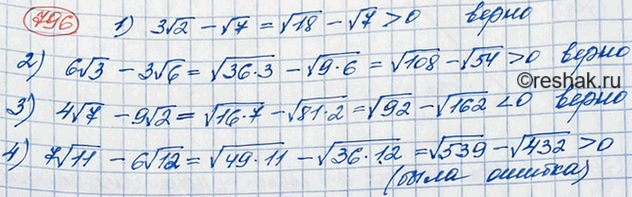 796 1) 3√2 - √7 = √18 - √7 > 0 верно
2) 6√3 - 3√6 = √36·3 - √9·6 = √108 - √54 > 0 верно
3) 4√7 - 9√2 = √16·7 - √81·2 = √92 - √162 < 0 верно
4) 7√11 - 6√12 = √49·11 - √36·12 = √539 - √432 > 0
(была ошибка)
©reshak.ru